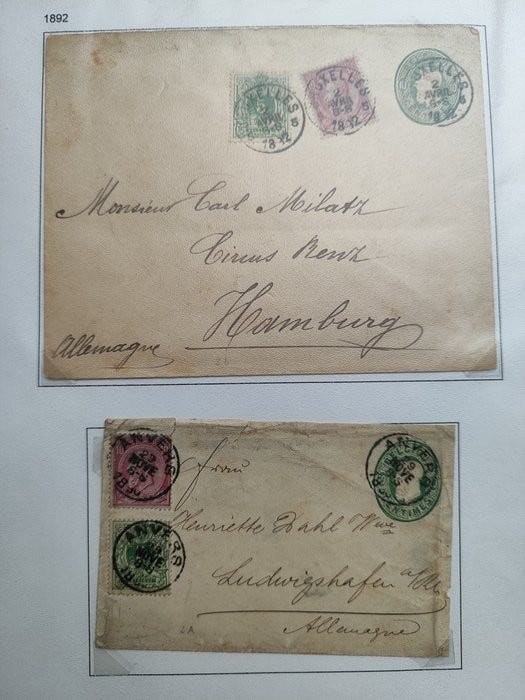 1892
IXELLES 5
2
AVRIL
5-S
1892
IXELLES 5
2
AVRIL
5-S
1892
IXELLES 5
2
AVRIL
5-S
1892
Monsieur Carl Milatz
Circus Renz
Hamburg
Allemagne
ANVERS
29
NOVE
ANVERS
NOVE
ANVERS
NOVE
CENTIMES
Frau
Henriette Dahl Wwe
Ludwigshafen a/Rh
Allemagne